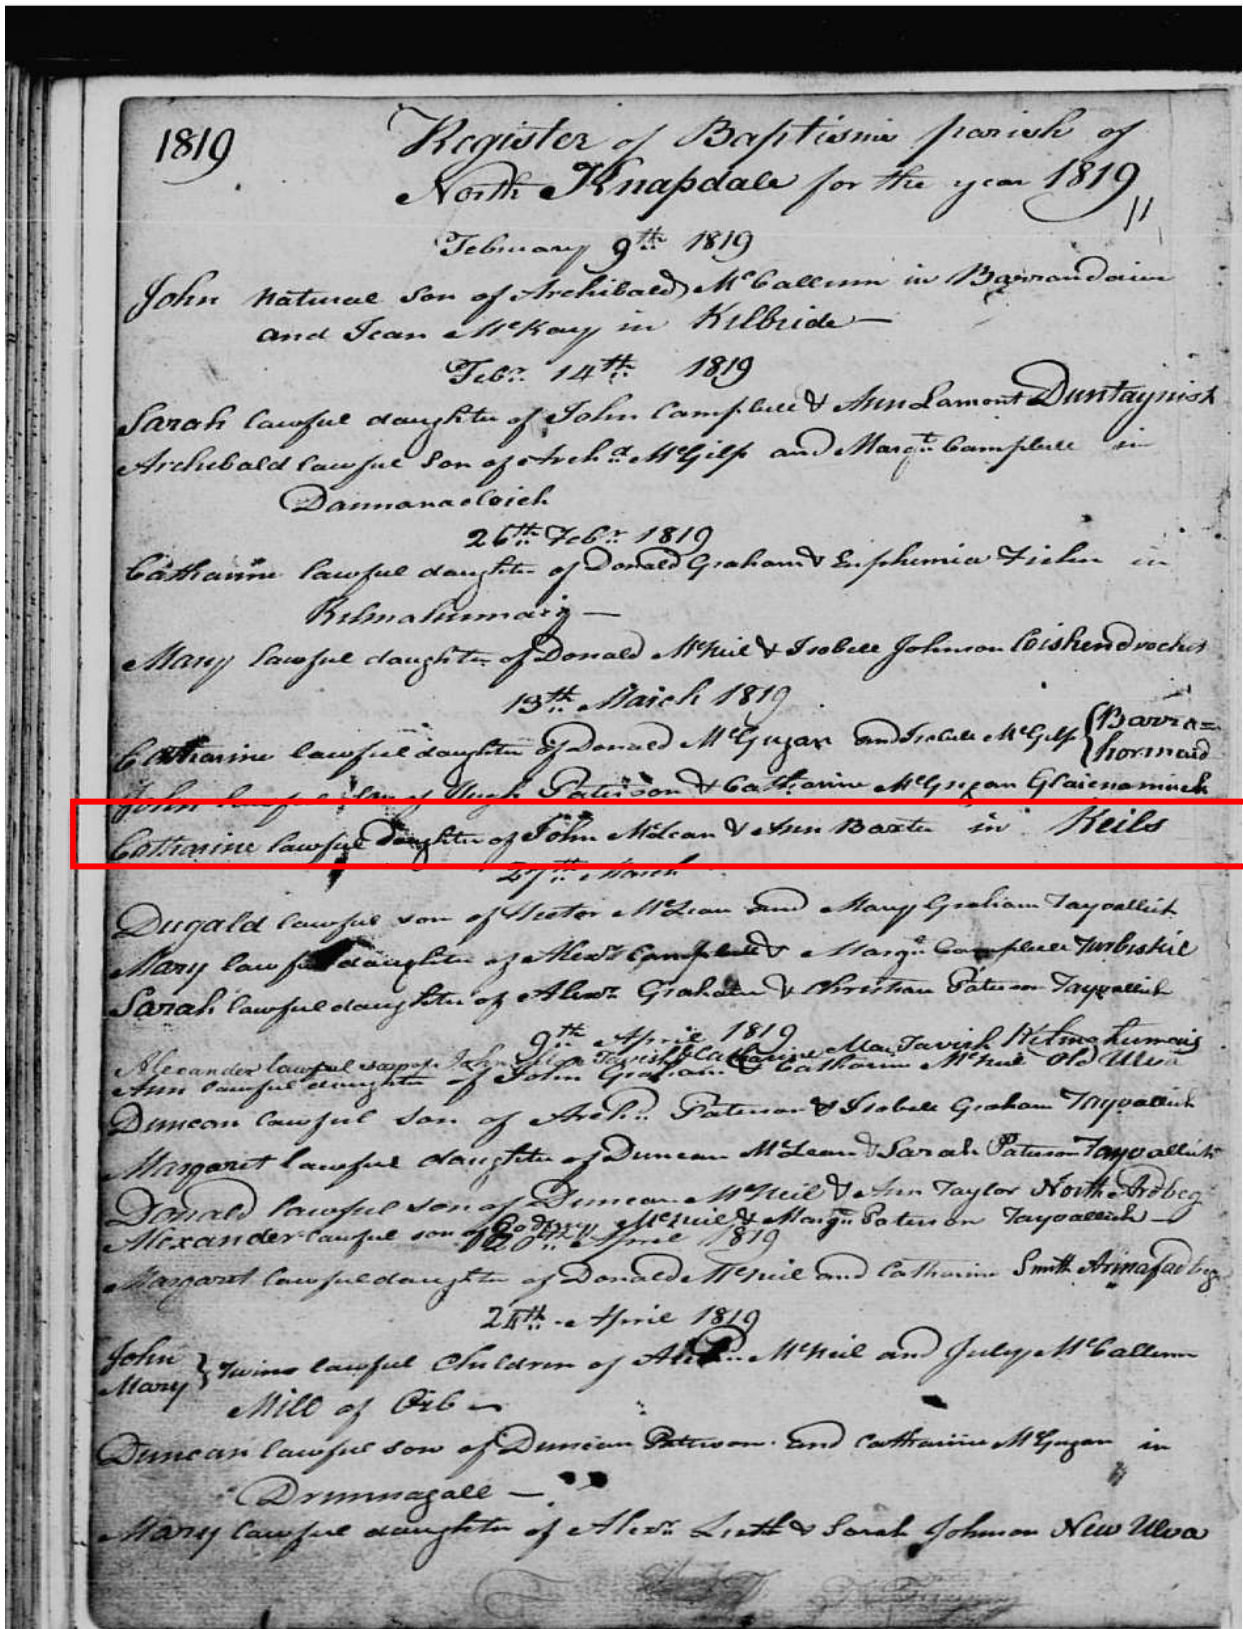 1819
Register of Baptisms parish of
North Knapdale for the year 1819
February 9th 1819
John Natural Son of Archibald McCallum in Barrandaim
and Jean McKay in Kilbride —
Febr. 14th 1819
Sarah lawful daughter of John Campbell & Ann Lamont Duntaynish
Archibald lawful Son of Archd McGilp and Margt Campbell in
Dannanacloich
26th Febr 1819
Catharine lawful daughter of Donald Graham & Euphemia Fisher in
Kilmahumaig —
Mary lawful daughter of Donald McNeil & Isobell Johnson
13th March 1819
Catharine lawful daughter of Donald McGugan and Isabell McGilp {Barra=
{hormaid
John lawful Son of Hugh Paterson & Catharine McGugan
Catharine lawful Daughter of John McLean & Ann Baxter in Keils
27th March
Dugald lawful son of Hector McLean and Mary Graham Tayvallich
Mary lawful daughter of Alexr Campbell & Margt Campbell Turbiskil
Sarah lawful daughter of Alexr Graham & Christian Paterson Tayvallich
9th April 1819
Alexander lawful son of John MacTavish & Catharine MacTavish Kilmahumaig
Ann lawful daughter of John Graham & Catharine McNeil Old Ulva
Duncan lawful son of Archd Paterson & Isobell Graham Tayvallich
Margaret lawful daughter of Duncan McLean & Sarah Paterson Tayvallich
Donald lawful son of Duncan McNeil & Ann Taylor North Ardbeg
Alexander lawful son of Godfrey McNeil & Margt Paterson Tayvallich —
20th April 1819
Margaret lawful daughter of Donald McNeil and Catharine Smith Arinafadbeg
24th April 1819
John
Mary } Twins lawful Children of McNeil and July McCallum
Mill of Oib
Duncan lawful son of Duncan Paterson and Catharine McGugan in
Drumnagall —
Mary lawful daughter of Alexr Leith & Sarah Johnson New Ulva